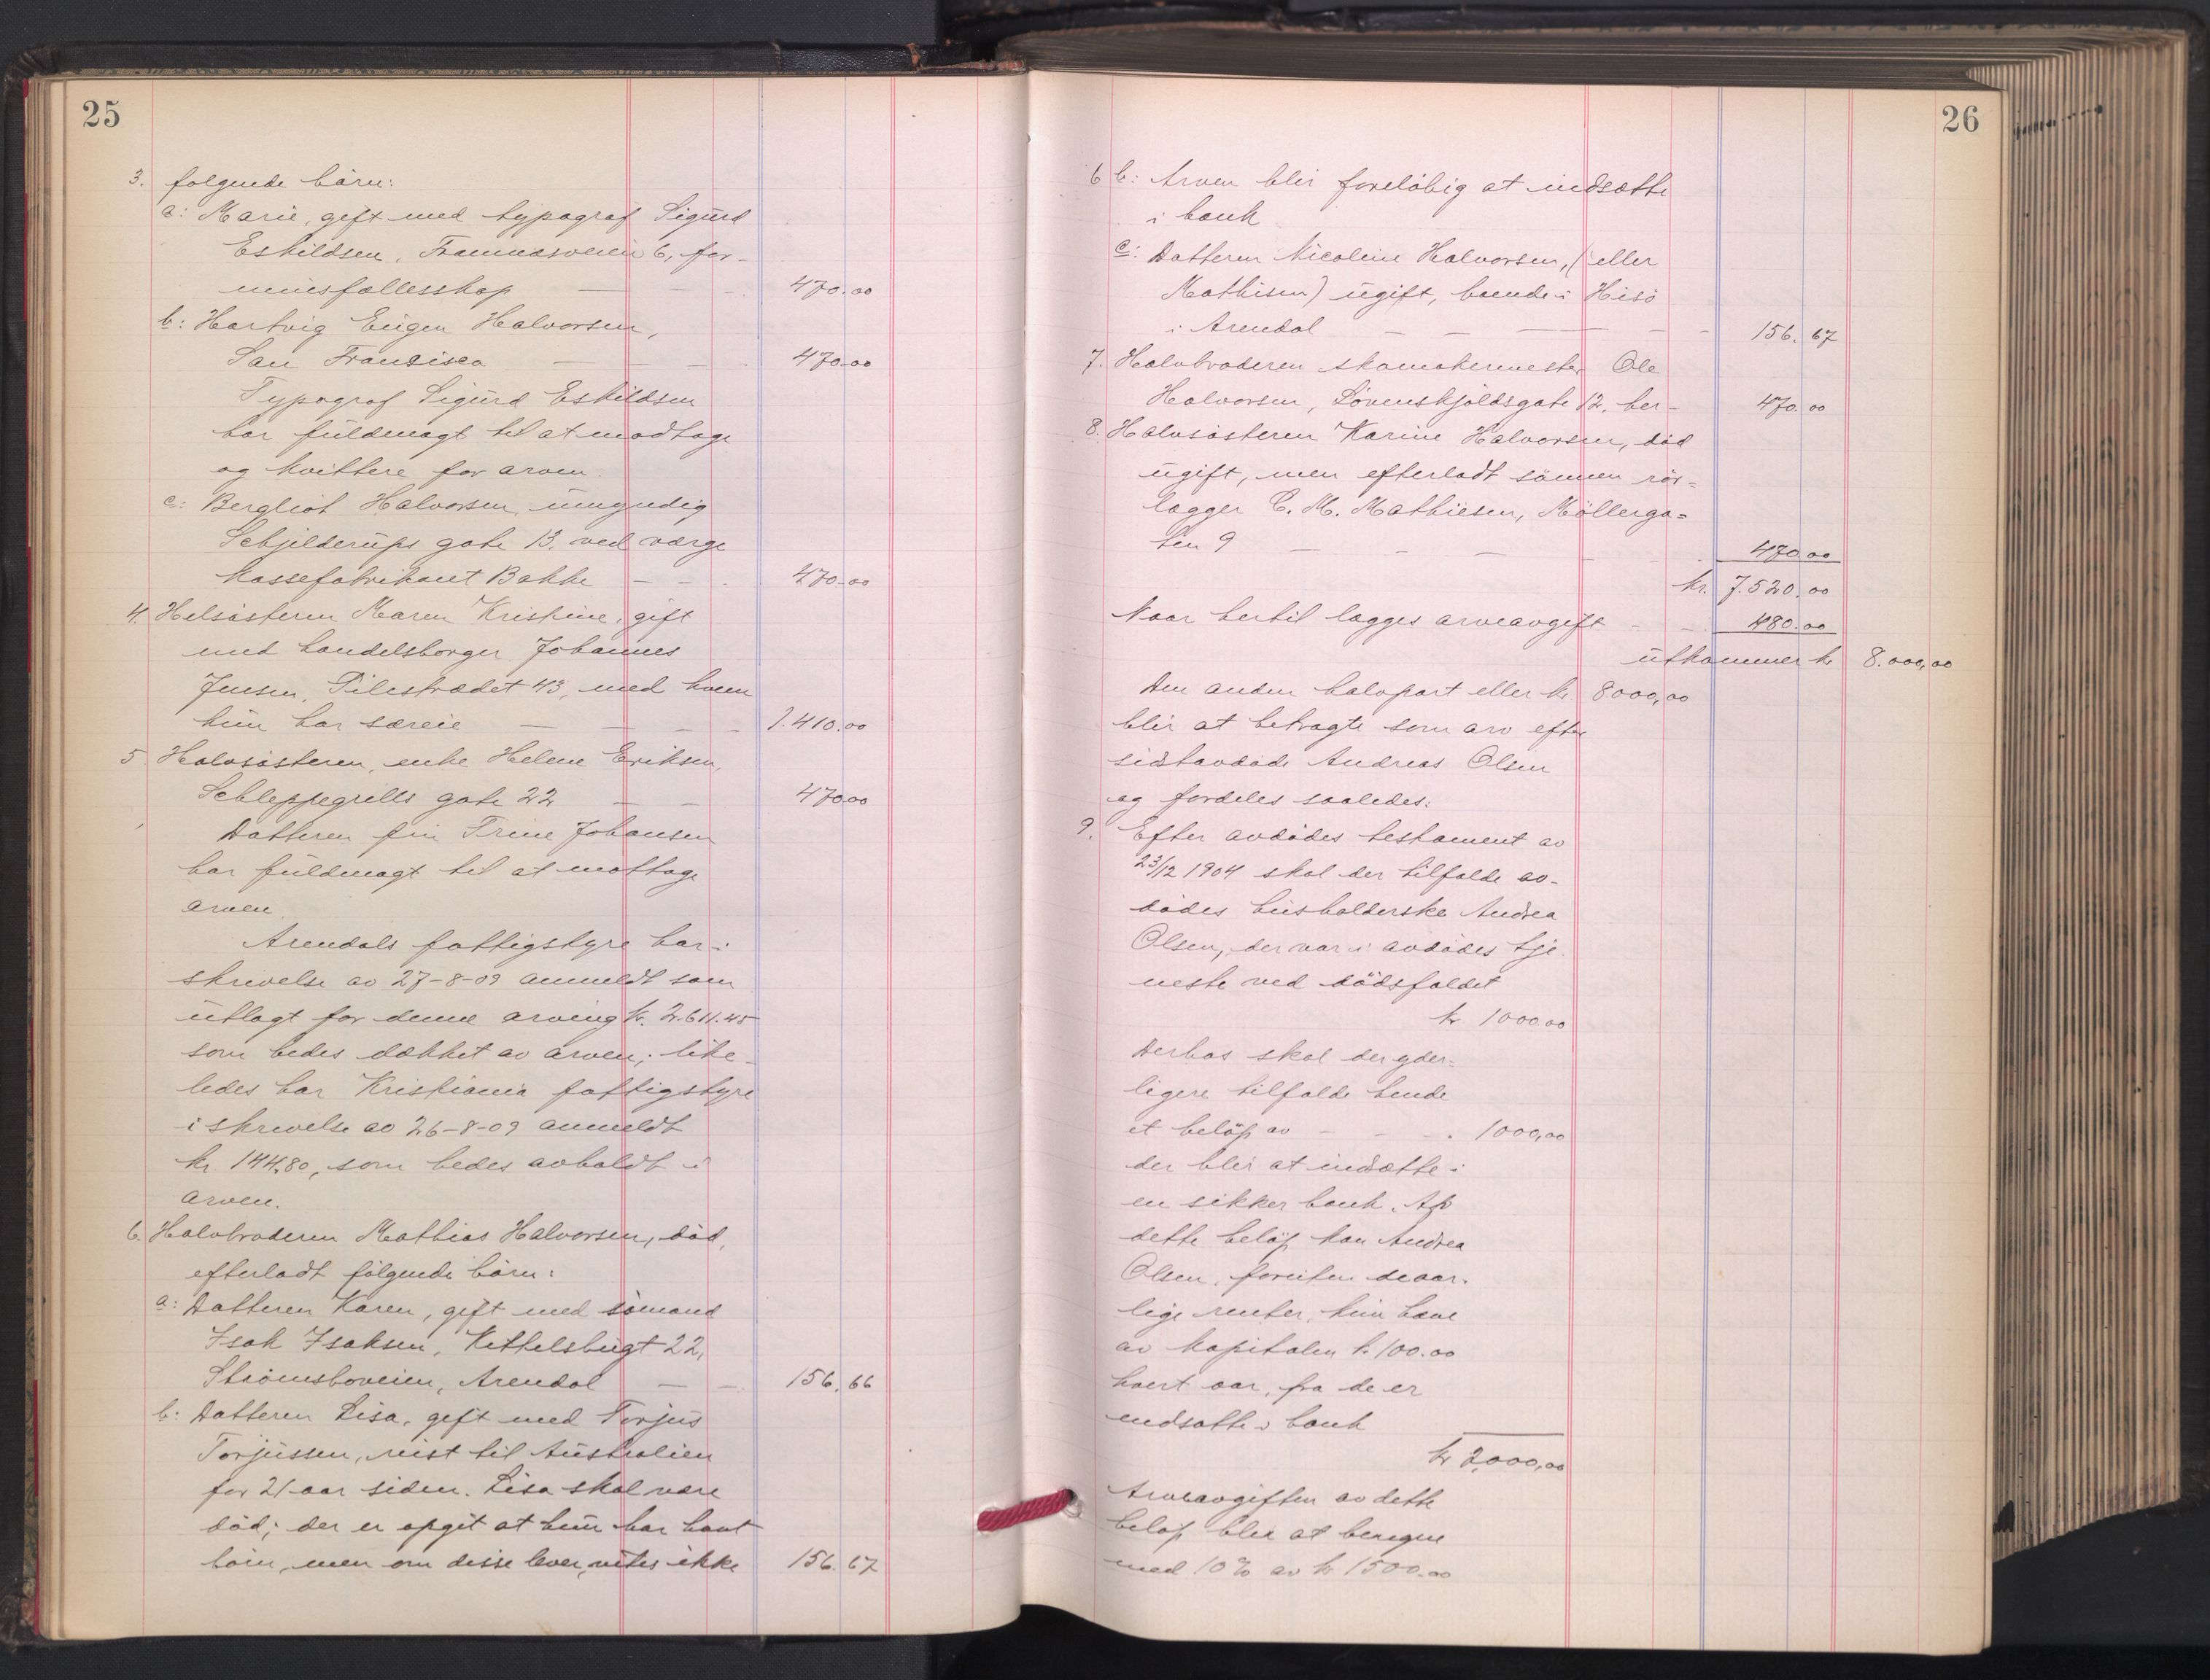 25
3. følgende børn:
a: Marie, gift med typograf Sigurd
Eskildsen, Framnæsveien 6, for-
muesfællesskap — — - 470.00
b: Hartvig Eugen Halvorsen,
San Francisco — — - 470.00
Typograf Sigurd Eskildsen
har fuldmagt til at modtage
og kvittere for arven.
c: Bergliot Halvorsen, umyndig
Schjelderups gate 13, ved værge
kassefabrikant Bakke — - - 470.00
4. Helsøsteren Maren Kristine, gift
med handelsborger Johannes
Jensen, Pilestrædet 43, med hvem
hun har særeie — — - - 1.410.00
5. Halvsøsteren, enke Helene Eriksen,
Schleppegrells gate 22 — - 470.00
Datteren fru Trine Johansen
har fuldmagt til at mottage
arven.
Arendals fattigstyre har i
skrivelse av 27-8-09 anmeldt som
utlagt for denne arving kr. 2.611.45
som bedes dækket av arven; like-
ledes har Kristiania fattigstyre
i skrivelse av 26-8-09 anmeldt
kr. 144.80, som bedes avholdt i
arven.
6. Halvbroderen Mathias Halvorsen, død,
efterladt følgende børn:
a: Datteren Karen, gift med sømand
Isak Isaksen, Kittelsbugt 22,
Strømsboveien, Arendal — - 156.66
b: Datteren Lisa, gift med Torjus
Torjussen, reist til Australien
for 21 aar siden. Lisa skal være
død; der er opgit at hun har havt
børn, men om disse lever, vites ikke 156.67
26
6 b: Arven blir foreløbig at indsætte
i bank
c: Datteren Nicoline Halvorsen, (eller
Mathisen) ugift, boende i Hisø
i Arendal — — — - - 156.67
7. Halvbroderen skomakermester Ole
Halvorsen, Løvenskjoldsgate 12, her - 470.00
8. Halvsøsteren Karine Halvorsen, død
ugift, men efterladt sønnen rør=
lægger C. M. Mathiesen, Møllerga=
ten 9 — - — - - 470.00
kr. 7.520.00
Naar hertil lægges arveavgift - - 480.00
utkommer kr 8.000,00
Den anden halvpart eller kr 8000,00
blir at betragte som arv efter
sidstavdøde Andreas Olsen
og fordeles saaledes:
9. Efter avdødes testament av
23/12 1904 skal der tilfalde av-
dødes husholderske Andrea
Olsen, der var i avdødes tje
neste ved dødsfaldet
kr 1000.00
Derhos skal der yder=
ligere tilfalde hende
et beløp av - - - . 1000,00
der blir at indsætte i
en sikker bank. Av
dette beløp kan Andrea
Olsen, foruten de aar-
lige renter, kun hæve
av kapitalen kr. 100.00
hvert aar, fra de er
indsatte i bank
kr 2,000,00
Arveavgiften av dette
beløp blir at beregne
med 10% av kr 1500.00